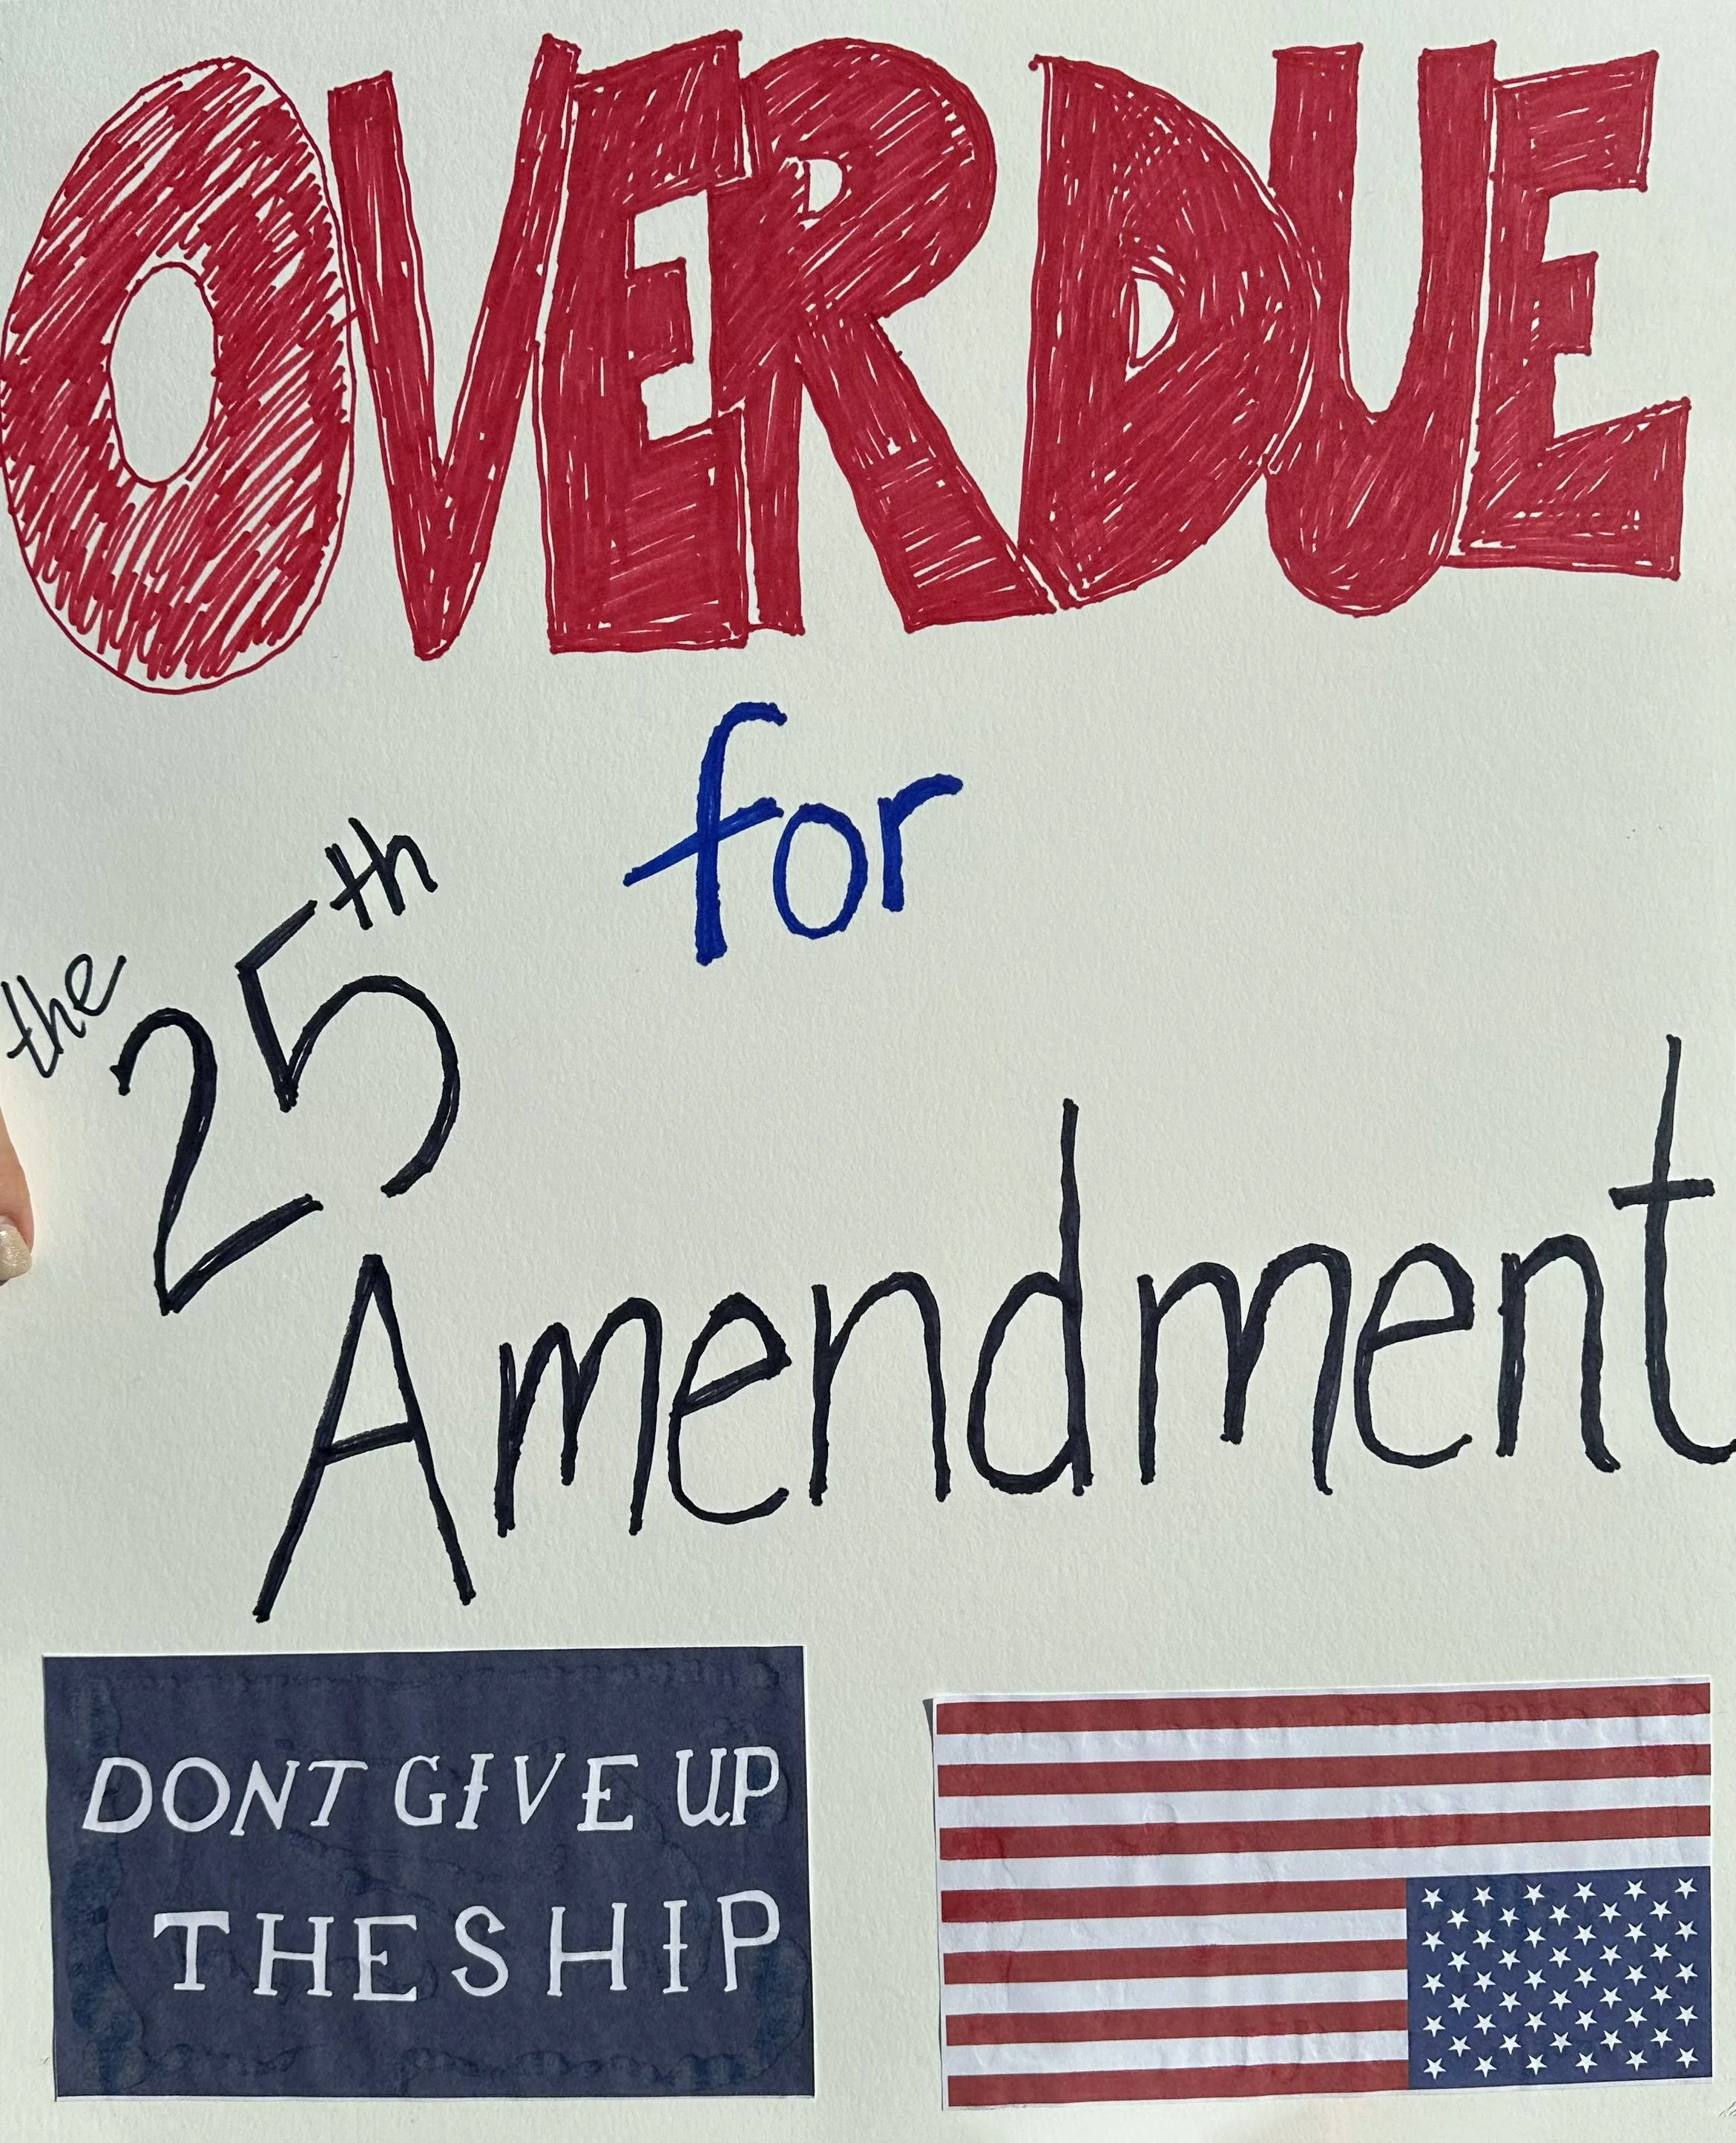 OVERDUE
for
the 25th
Amendment
DONT GIVE UP
THE SHIP